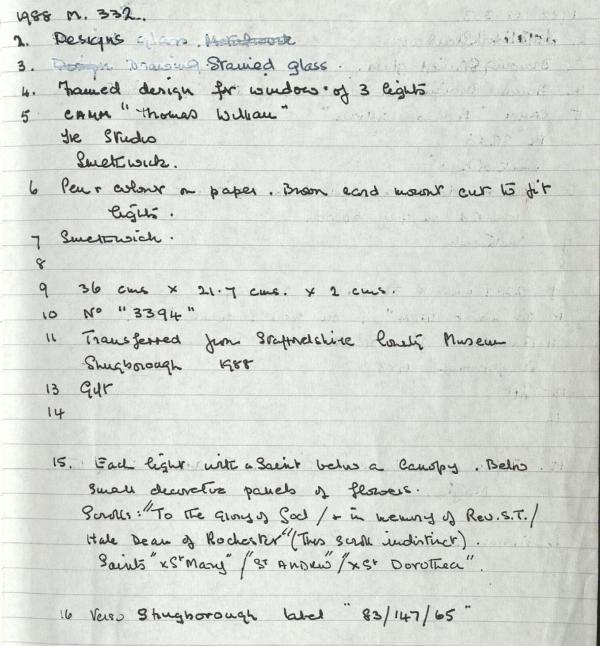 1988 M. 332.
2. Designs glass
3. Drawing Stained glass.
4. Framed design for window of 3 lights
5 CAMM "Thomas William"
The Studio
Smethwick.
6 Pen & colour on paper. Brown card mount cut to fit
lights.
7 Smethwick.
8
9 36 cms x 21.7 cms. x 2 cms.
10 No "3394"
11 Transferred from Staffordshire County Museum
Shugborough 1988
13 Gift
14
15. Each light with a Saint below a Canopy. Below
small decorative panels of flowers.
Scrolls: "To the Glory of God / & in memory of Rev. S.T. /
Hale Dean of Rochester" (This scroll indistinct).
Saints "x St Mary" / "St Andrew" / "x St Dorothea".
16 Verso Shugborough label "83/147/65"